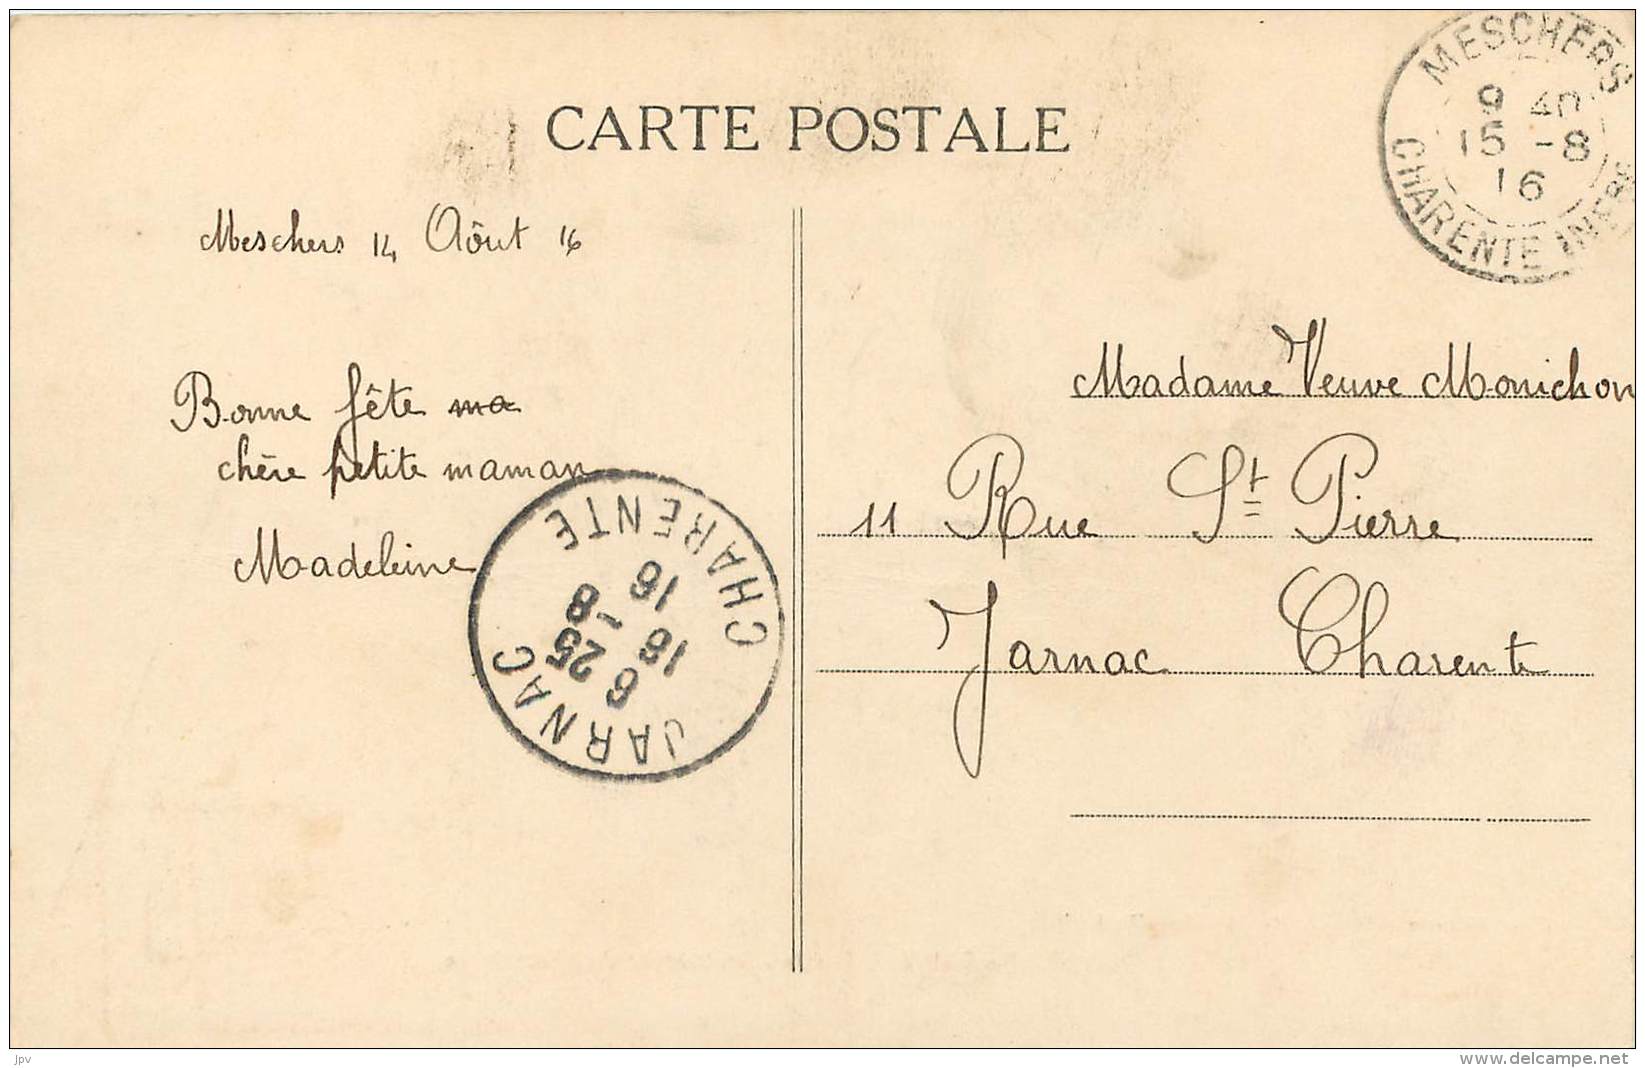 CARTE POSTALE
MESCHERS
9 40
15 -8
16
CHARENTE INFRE
Meschers 14 Août 16
Bonne fête ma
chère petite maman
Madeleine
Madame Veuve Monichon
11 Rue St Pierre
Jarnac Charente
JARNAC
6 25
16 -8
16
CHARENTE
jpv
www.delcampe.net